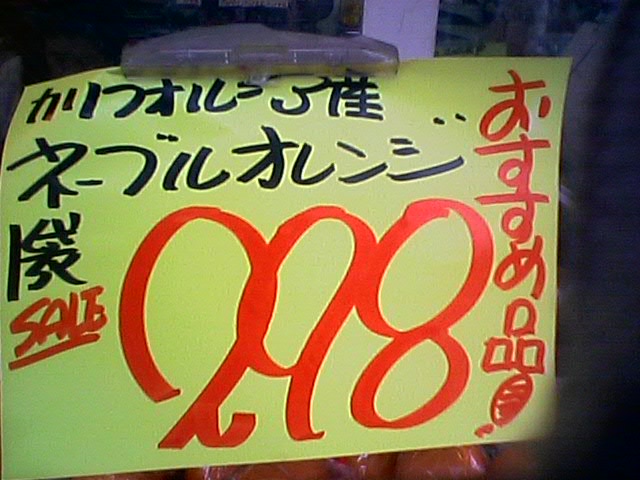 カリフオルニア産
ネーブルオレンジ
1袋
SALE
298
おすすめ品